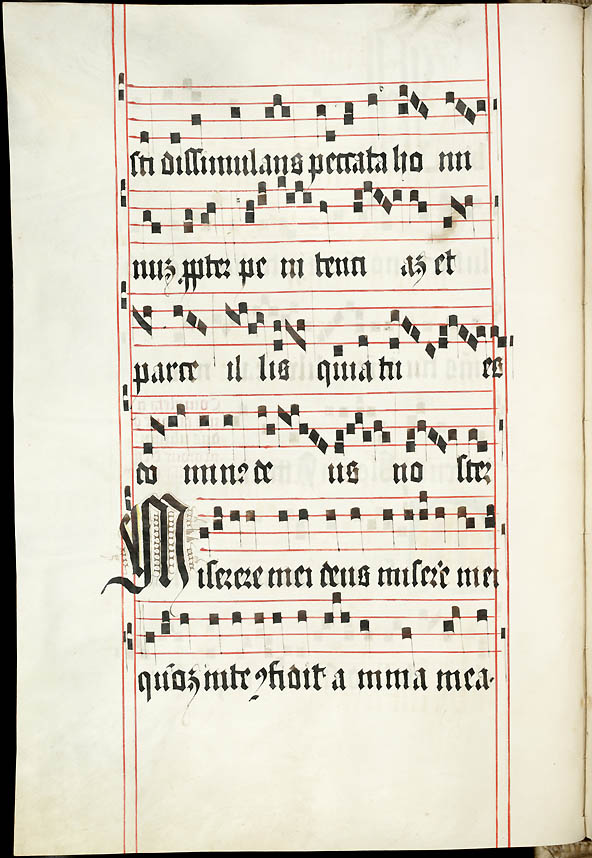 sti dissimulans peccata ho mi
nuz ꝓpter pe ni tenti az et
parce il lis quia tu es
do minꝰ de us no ster
Miserere mei deus misere mei
qm̄oꝫ in te ꝯfidit a nima mea.